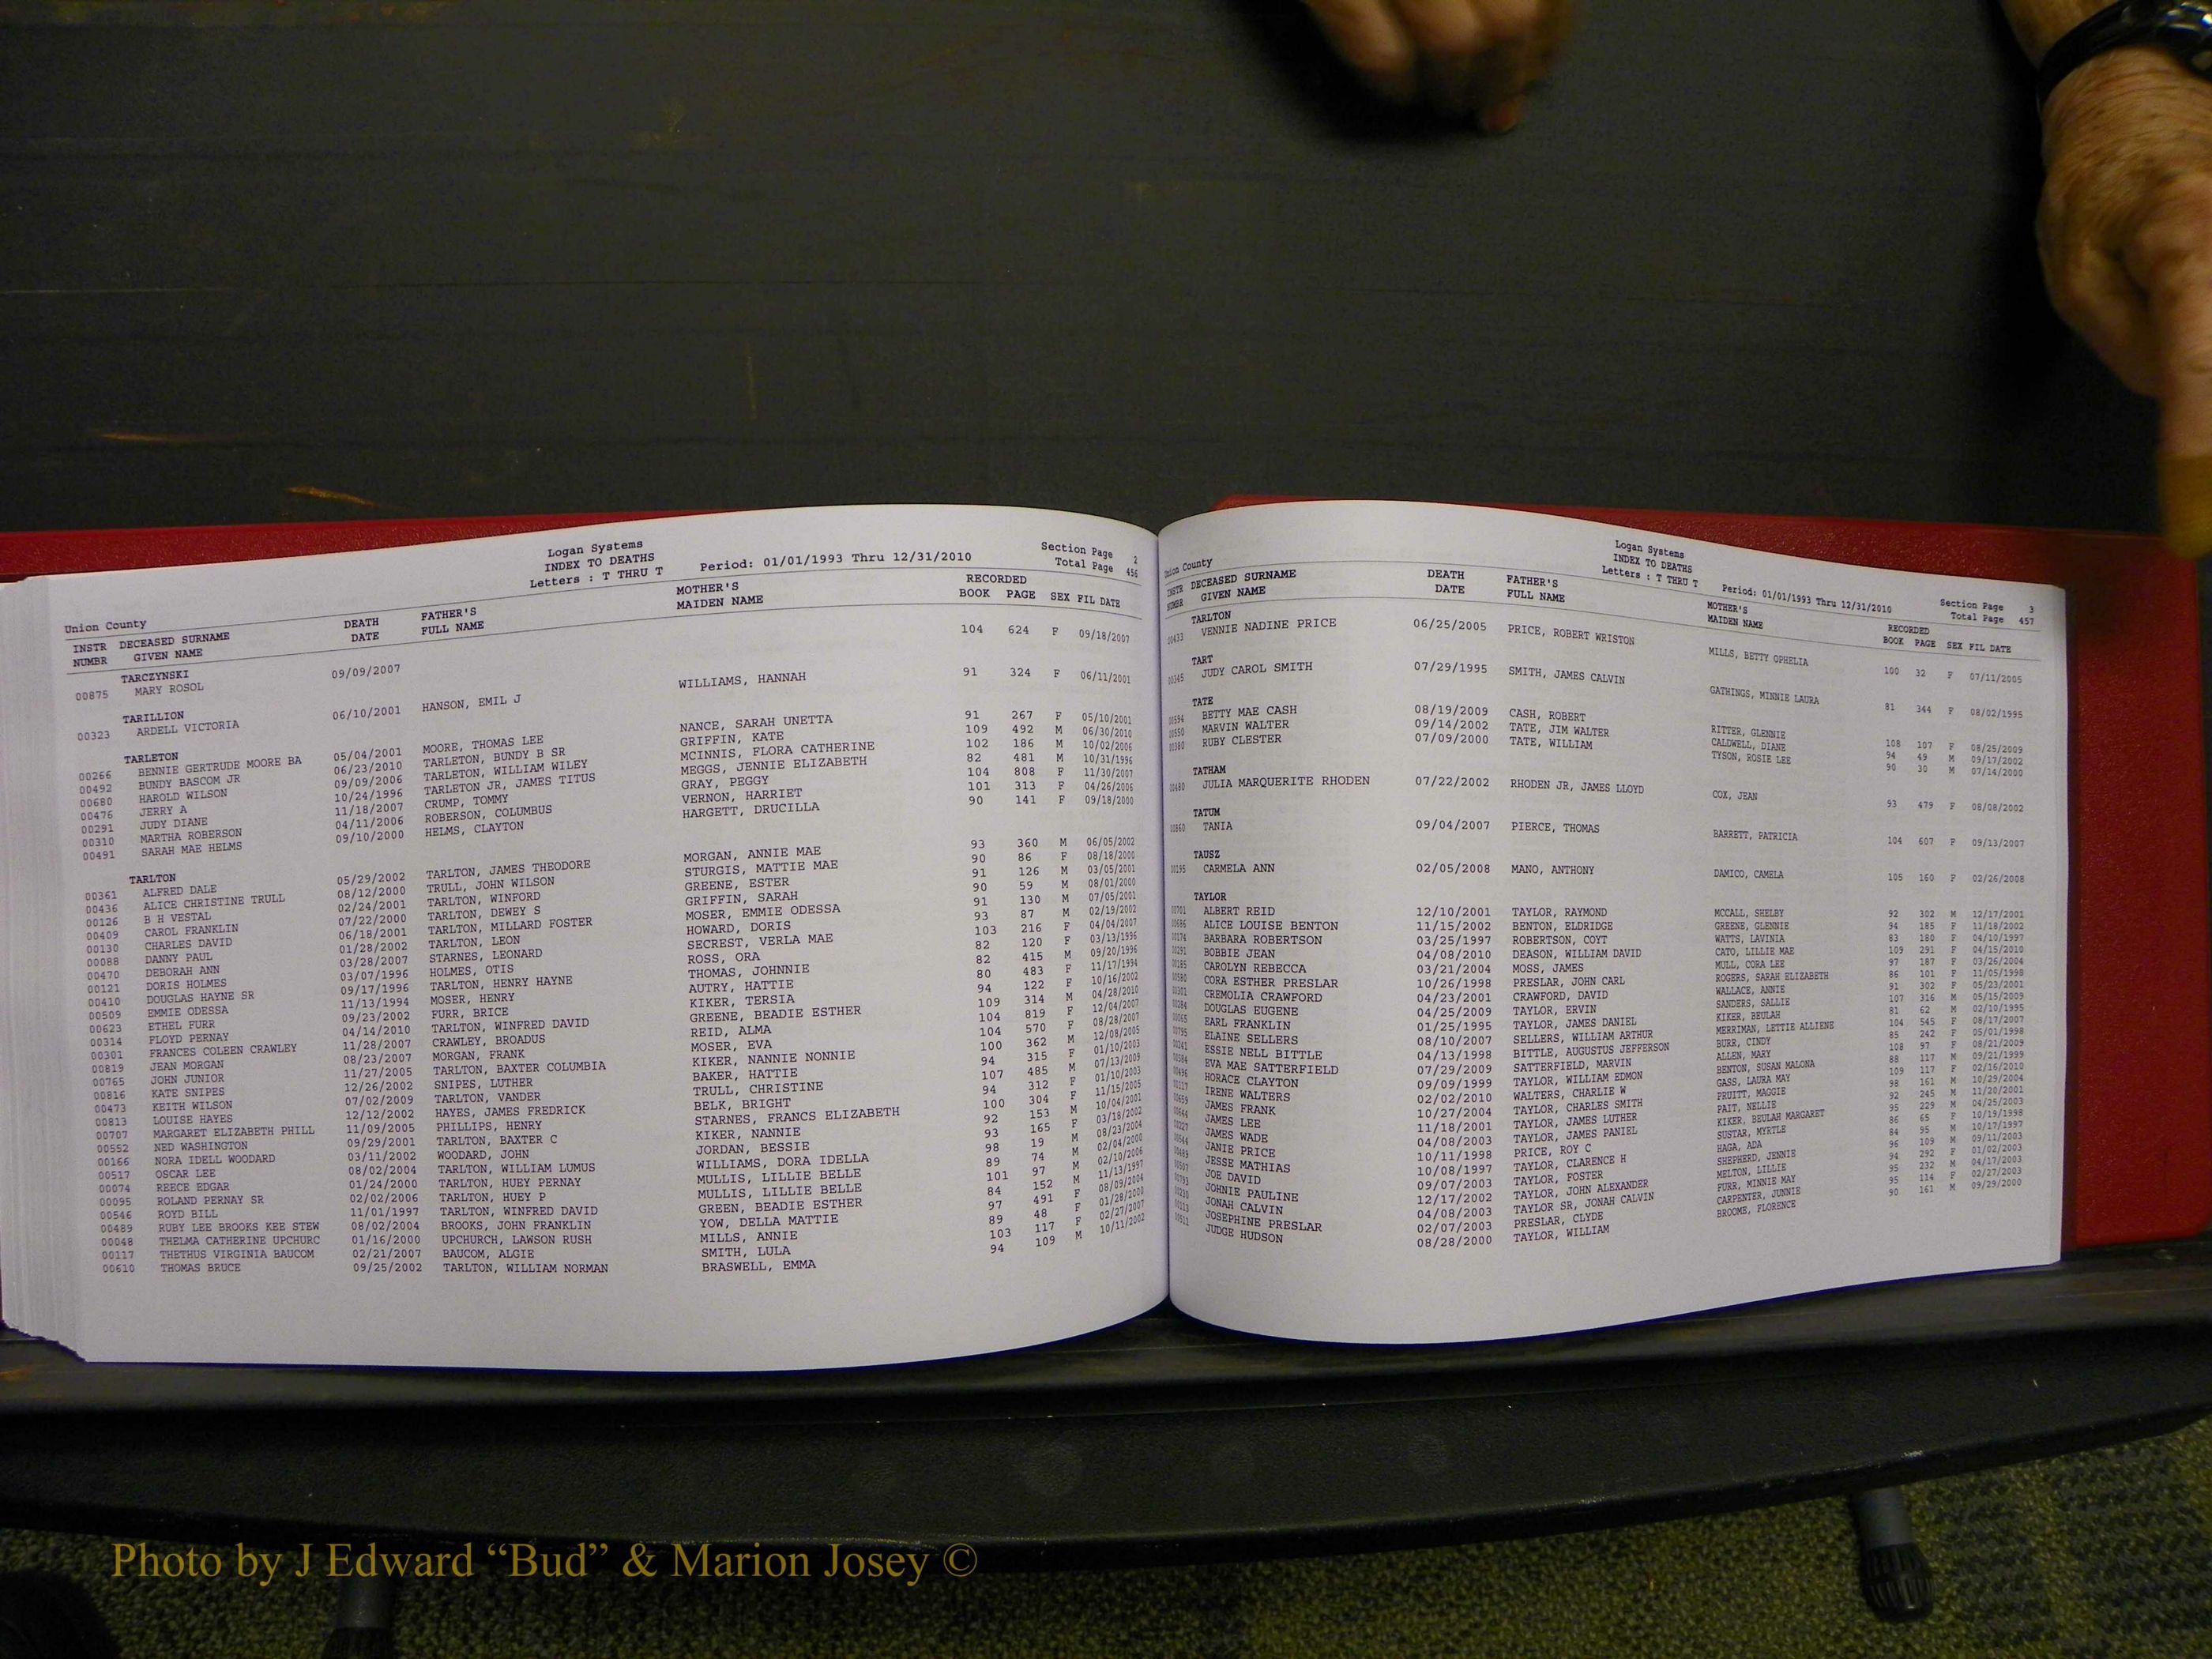 Logan Systems
INDEX TO DEATHS
Letters : T THRU T
Period: 01/01/1993 Thru 12/31/2010
Section Page 2
Total Page 456
Union County
INSTR DECEASED SURNAME DEATH FATHER'S MOTHER'S RECORDED
NUMBR GIVEN NAME DATE FULL NAME MAIDEN NAME BOOK PAGE SEX FIL DATE
TARCZYNSKI
00875 MARY ROSOL 09/09/2007 104 624 F 09/18/2007
TARILLION
00323 ARDELL VICTORIA 06/10/2001 HANSON, EMIL J WILLIAMS, HANNAH 91 324 F 06/11/2001
TARLETON
00266 BENNIE GERTRUDE MOORE BA 05/04/2001 MOORE, THOMAS LEE NANCE, SARAH UNETTA 91 267 F 05/10/2001
00492 BUNDY BASCOM JR 06/23/2010 TARLETON, BUNDY B SR GRIFFIN, KATE 109 492 M 06/30/2010
00680 HAROLD WILSON 09/09/2006 TARLETON, WILLIAM WILEY MCINNIS, FLORA CATHERINE 102 186 M 10/02/2006
00476 JERRY A 10/24/1996 TARLETON JR, JAMES TITUS MEGGS, JENNIE ELIZABETH 82 481 M 10/31/1996
00291 JUDY DIANE 11/18/2007 CRUMP, TOMMY GRAY, PEGGY 104 808 F 11/30/2007
00310 MARTHA ROBERSON 04/11/2006 ROBERSON, COLUMBUS VERNON, HARRIET 101 313 F 04/26/2006
00491 SARAH MAE HELMS 09/10/2000 HELMS, CLAYTON HARGETT, DRUCILLA 90 141 F 09/18/2000
TARLTON
00361 ALFRED DALE 05/29/2002 TARLTON, JAMES THEODORE MORGAN, ANNIE MAE 93 360 M 06/05/2002
00436 ALICE CHRISTINE TRULL 08/12/2000 TRULL, JOHN WILSON STURGIS, MATTIE MAE 90 86 F 08/18/2000
00126 B H VESTAL 02/24/2001 TARLTON, WINFORD GREENE, ESTER 91 126 M 03/05/2001
00409 CAROL FRANKLIN 07/22/2000 TARLTON, DEWEY S GRIFFIN, SARAH 90 59 M 08/01/2000
00130 CHARLES DAVID 06/18/2001 TARLTON, MILLARD FOSTER MOSER, EMMIE ODESSA 91 130 M 07/05/2001
00088 DANNY PAUL 01/28/2002 TARLTON, LEON HOWARD, DORIS 93 87 M 02/19/2002
00470 DEBORAH ANN 03/28/2007 STARNES, LEONARD SECREST, VERLA MAE 103 216 F 04/04/2007
00121 DORIS HOLMES 03/07/1996 HOLMES, OTIS ROSS, ORA 82 120 F 03/13/1996
00410 DOUGLAS HAYNE SR 09/17/1996 TARLTON, HENRY HAYNE THOMAS, JOHNNIE 82 415 M 09/20/1996
00509 EMMIE ODESSA 11/13/1994 MOSER, HENRY AUTRY, HATTIE 80 483 F 11/17/1994
00623 ETHEL FURR 09/23/2002 FURR, BRICE KIKER, TERSIA 94 122 F 10/16/2002
00314 FLOYD PERNAY 04/14/2010 TARLTON, WINFRED DAVID GREENE, BEADIE ESTHER 109 314 M 04/28/2010
00301 FRANCES COLEEN CRAWLEY 11/28/2007 CRAWLEY, BROADUS REID, ALMA 104 819 F 12/04/2007
00819 JEAN MORGAN 08/23/2007 MORGAN, FRANK MOSER, EVA 104 570 F 08/28/2007
00765 JOHN JUNIOR 11/27/2005 TARLTON, BAXTER COLUMBIA KIKER, NANNIE NONNIE 100 362 M 12/08/2005
00816 KATE SNIPES 12/26/2002 SNIPES, LUTHER BAKER, HATTIE 94 315 F 01/10/2003
00473 KEITH WILSON 07/02/2009 TARLTON, VANDER TRULL, CHRISTINE 107 485 M 07/13/2009
00813 LOUISE HAYES 12/12/2002 HAYES, JAMES FREDRICK BELK, BRIGHT 94 312 F 01/10/2003
00707 MARGARET ELIZABETH PHILL 11/09/2005 PHILLIPS, HENRY STARNES, FRANCS ELIZABETH 100 304 F 11/15/2005
00552 NED WASHINGTON 09/29/2001 TARLTON, BAXTER C KIKER, NANNIE 92 153 M 10/04/2001
00166 NORA IDELL WOODARD 03/11/2002 WOODARD, JOHN JORDAN, BESSIE 93 165 F 03/18/2002
00517 OSCAR LEE 08/02/2004 TARLTON, WILLIAM LUMUS WILLIAMS, DORA IDELLA 98 19 M 08/23/2004
00074 REECE EDGAR 01/24/2000 TARLTON, HUEY PERNAY MULLIS, LILLIE BELLE 89 74 M 02/04/2000
00095 ROLAND PERNAY SR 02/02/2006 TARLTON, HUEY P MULLIS, LILLIE BELLE 101 97 M 02/10/2006
00546 ROYD BILL 11/01/1997 TARLTON, WINFRED DAVID GREEN, BEADIE ESTHER 84 152 M 11/13/1997
00489 RUBY LEE BROOKS KEE STEW 08/02/2004 BROOKS, JOHN FRANKLIN YOW, DELLA MATTIE 97 491 F 08/09/2004
00048 THELMA CATHERINE UPCHURC 01/16/2000 UPCHURCH, LAWSON RUSH MILLS, ANNIE 89 48 F 01/28/2000
00117 THETHUS VIRGINIA BAUCOM 02/21/2007 BAUCOM, ALGIE SMITH, LULA 103 117 F 02/27/2007
00610 THOMAS BRUCE 09/25/2002 TARLTON, WILLIAM NORMAN BRASWELL, EMMA 94 109 M 10/11/2002
Logan Systems
INDEX TO DEATHS
Letters : T THRU T
Period: 01/01/1993 Thru 12/31/2010
Section Page 3
Total Page 457
Union County
INSTR DECEASED SURNAME DEATH FATHER'S MOTHER'S RECORDED
NUMBR GIVEN NAME DATE FULL NAME MAIDEN NAME BOOK PAGE SEX FIL DATE
TARLTON
VENNIE NADINE PRICE 06/25/2005 PRICE, ROBERT WRISTON MILLS, BETTY OPHELIA 100 32 F 07/11/2005
TART
JUDY CAROL SMITH 07/29/1995 SMITH, JAMES CALVIN GATHINGS, MINNIE LAURA 81 344 F 08/02/1995
TATE
BETTY MAE CASH 08/19/2009 CASH, ROBERT RITTER, GLENNIE 108 107 F 08/25/2009
MARVIN WALTER 09/14/2002 TATE, JIM WALTER CALDWELL, DIANE 94 49 M 09/17/2002
RUBY CLESTER 07/09/2000 TATE, WILLIAM TYSON, ROSIE LEE 90 30 M 07/14/2000
TATHAM
JULIA MARQUERITE RHODEN 07/22/2002 RHODEN JR, JAMES LLOYD COX, JEAN 93 479 F 08/08/2002
TATUM
TANIA 09/04/2007 PIERCE, THOMAS BARRETT, PATRICIA 104 607 F 09/13/2007
TAUSZ
CARMELA ANN 02/05/2008 MANO, ANTHONY DAMICO, CAMELA 105 160 F 02/26/2008
TAYLOR
ALBERT REID 12/10/2001 TAYLOR, RAYMOND MCCALL, SHELBY 92 302 M 12/17/2001
ALICE LOUISE BENTON 11/15/2002 BENTON, ELDRIDGE GREENE, GLENNIE 94 185 F 11/18/2002
BARBARA ROBERTSON 03/25/1997 ROBERTSON, COYT WATTS, LAVINIA 83 180 F 04/10/1997
BOBBIE JEAN 04/08/2010 DEASON, WILLIAM DAVID CATO, LILLIE MAE 109 291 F 04/15/2010
CAROLYN REBECCA 03/21/2004 MOSS, JAMES MULL, CORA LEE 97 187 F 03/26/2004
CORA ESTHER PRESLAR 10/26/1998 PRESLAR, JOHN CARL ROGERS, SARAH ELIZABETH 86 101 F 11/05/1998
CREMOLIA CRAWFORD 04/23/2001 CRAWFORD, DAVID WALLACE, ANNIE 91 302 F 05/23/2001
DOUGLAS EUGENE 04/25/2009 TAYLOR, ERVIN SANDERS, SALLIE 107 316 M 05/15/2009
EARL FRANKLIN 01/25/1995 TAYLOR, JAMES DANIEL KIKER, BEULAH 81 62 M 02/10/1995
ELAINE SELLERS 08/10/2007 SELLERS, WILLIAM ARTHUR MERRIMAN, LETTIE ALLIENE 104 545 F 08/17/2007
ESSIE NELL BITTLE 04/13/1998 BITTLE, AUGUSTUS JEFFERSON BURR, CINDY 85 242 F 05/01/1998
EVA MAE SATTERFIELD 07/29/2009 SATTERFIELD, MARVIN ALLEN, MARY 108 97 F 08/21/2009
HORACE CLAYTON 09/09/1999 TAYLOR, WILLIAM EDMON BENTON, SUSAN MALONA 88 117 M 09/21/1999
IRENE WALTERS 02/02/2010 WALTERS, CHARLIE W GASS, LAURA MAY 109 117 F 02/16/2010
JAMES FRANK 10/27/2004 TAYLOR, CHARLES SMITH PRUITT, MAGGIE 98 161 M 10/29/2004
JAMES LEE 11/18/2001 TAYLOR, JAMES LUTHER PAIT, NELLIE 92 245 M 11/20/2001
JAMES WADE 04/08/2003 TAYLOR, JAMES PANIEL KIKER, BEULAH MARGARET 95 229 M 04/25/2003
JANIE PRICE 10/11/1998 PRICE, ROY C SUSTAR, MYRTLE 86 65 F 10/19/1998
JESSE MATHIAS 10/08/1997 TAYLOR, CLARENCE H HAGA, ADA 84 95 M 10/17/1997
JOE DAVID 09/07/2003 TAYLOR, FOSTER SHEPHERD, JENNIE 96 109 M 09/11/2003
JOHNIE PAULINE 12/17/2002 TAYLOR, JOHN ALEXANDER MELTON, LILLIE 94 292 F 01/02/2003
JONAH CALVIN 04/08/2003 TAYLOR SR, JONAH CALVIN FURR, MINNIE MAY 95 232 M 04/17/2003
JOSEPHINE PRESLAR 02/07/2003 PRESLAR, CLYDE CARPENTER, JUNNIE 95 114 F 02/27/2003
JUDGE HUDSON 08/28/2000 TAYLOR, WILLIAM BROOME, FLORENCE 90 161 M 09/29/2000
Photo by J Edward “Bud” & Marion Josey ©